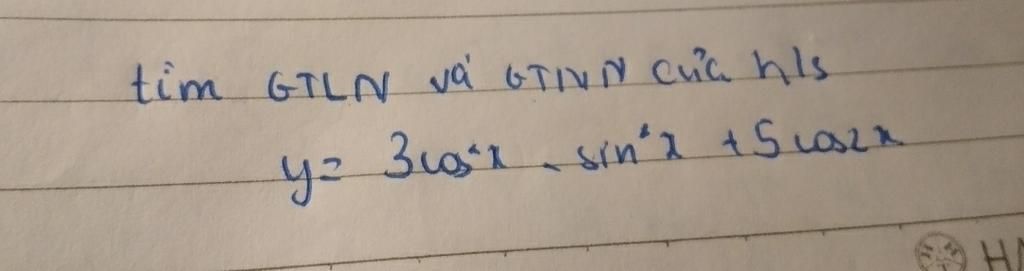 tìm GTLN và GTNN của h/s
y = 3cos²x - sin²x + 5cos2x